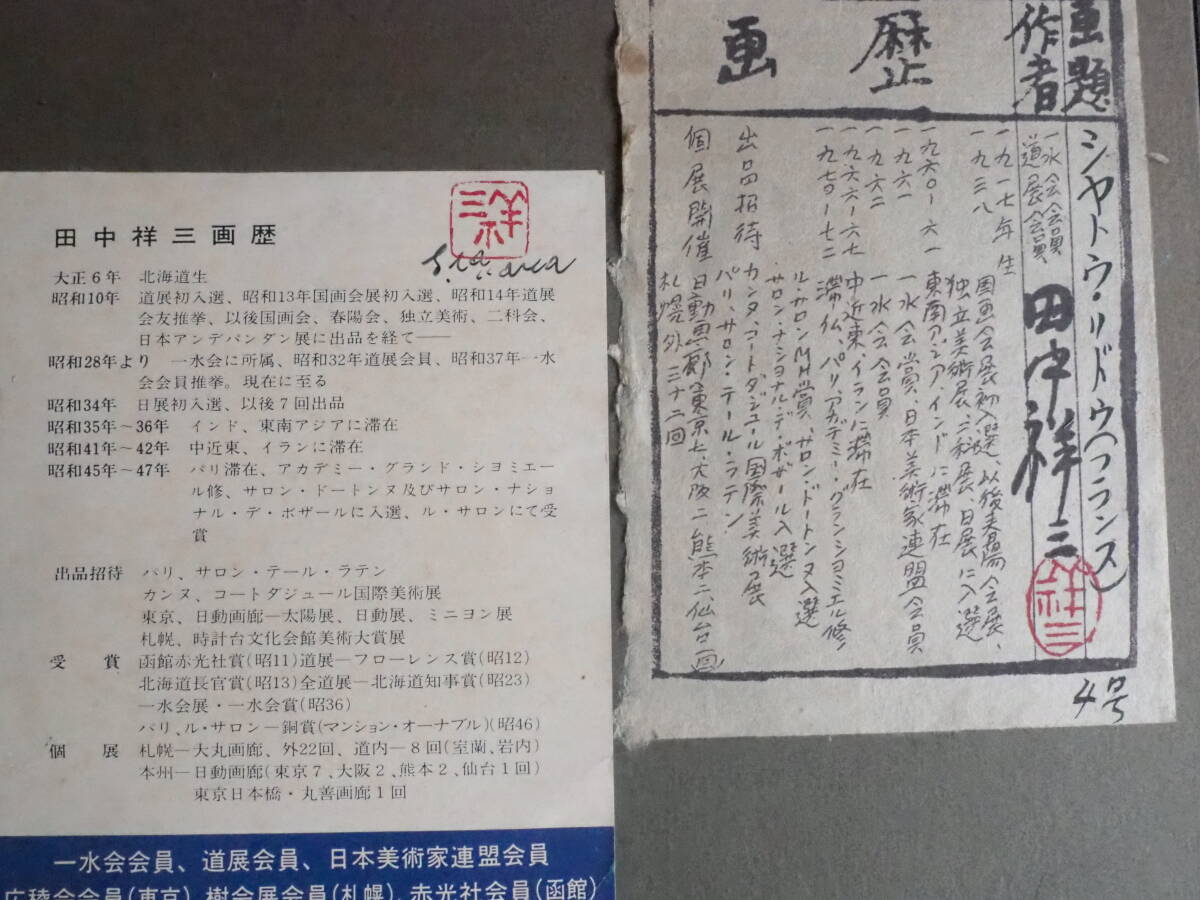 田中祥三画歴
祥三
大正6年 北海道生
昭和10年 道展初入選、昭和13年国画会展初入選、昭和14年道展
会友推挙、以後国画会、春陽会、独立美術、二科会、
日本アンデパンダン展に出品を経て——
昭和28年より 一水会に所属、昭和32年道展会員、昭和37年一水
会会員推挙。現在に至る
昭和34年 日展初入選、以後7回出品
昭和35年～36年 インド、東南アジアに滞在
昭和41年～42年 中近東、イランに滞在
昭和45年～47年 パリ滞在、アカデミー・グランド・シヨミエー
ル修、サロン・ドートンヌ及びサロン・ナショ
ナル・デ・ボザールに入選、ル・サロンにて受
賞
出品招待 パリ、サロン・テール・ラテン
カンヌ、コートダジュール国際美術展
東京、日動画廊—太陽展、日動展、ミニヨン展
札幌、時計台文化会館美術大賞展
受賞 函館赤光社賞(昭11)道展—フローレンス賞(昭12)
北海道長官賞(昭13)全道展—北海道知事賞(昭23)
一水会展・一水会賞(昭36)
パリ、ル・サロン—銅賞(マンション・オーナブル)(昭46)
個展 札幌—大丸画廊、外22回、道内—8回(室蘭、岩内)
本州—日動画廊(東京7、大阪2、熊本2、仙台1回)
東京日本橋・丸善画廊1回
一水会会員、道展会員、日本美術家連盟会員
広稜会会員(東京)、樹会展会員(札幌)、赤光社会員(函館)
画題 シヤトウ・リドウ(フランス)
作者 田中祥三
祥三
一水会会員
道展会員
画歴
一九一七年 生
一九三八 国画会展初入選、以後春陽会展、
独立美術展、二科展、日展に入選
一九六〇-六一 東南アジア、インドに滞在
一九六一 一水会賞、日本美術家連盟会員
一九六二 一水会会員
一九六六-六七 中近東、イランに滞在
一九七〇-七二 滞仏、パリ、アカデミー・グランシヨミエル修
ル・サロンMH賞、サロン・ドートンヌ入選
サロン・ナショナル・デ・ボザール入選
出品招待 カンヌ、コートダジュール国際美術展
パリ、サロン・テール・ラテン
個展開催 日動画廊(東京七、大阪二、熊本二、仙台一回
札幌外三十二回
4号